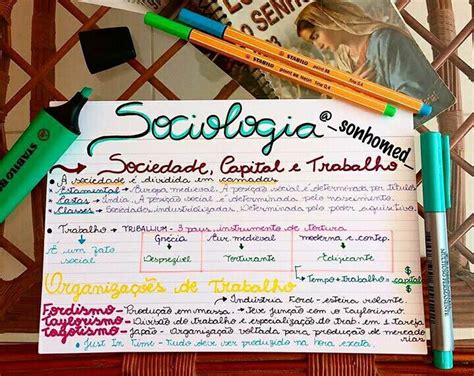 O SENHO
STABILO point 88 Neon fine 0,4
STABILO point 88 fine 0,4
STABILO BOSS
Sociologia
@_sonhomed
Sociedade, Capital e Trabalho
• A sociedade é dividida em camadas
• Estamental - Europa medieval. A posição social é determinada por títulos
• Castas - Índia. A posição social é determinada pelo nascimento.
• Classes - Sociedades industrializadas. Determinada pelo poder aquisitivo.
• Trabalho → TRIPALLIUM - 3 paus, instrumento de tortura
É um fato social
Grécia
Era medieval
moderna e contep.
Desprezível
Torturante
Edificante
Tempo + trabalho = capital
$
$
Organizações de Trabalho
Indústria Ford - esteira rolante.
Fordismo - Produção em massa. → Teve junção com o Taylorismo.
Taylorismo - Divisão de trabalho e especialização do trab. em 1 tarefa
Toyotismo - Japão - Organização voltada para produção de mercado
rias
• Just In Time - Tudo deve ser produzido na hora exata.